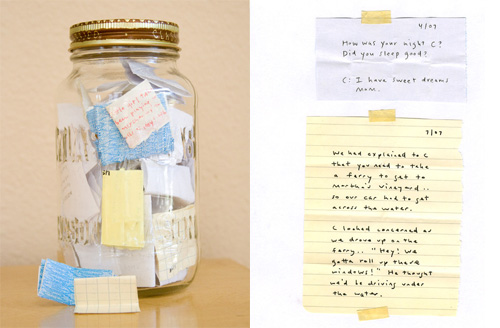 4/09
How was your night C?
Did you sleep good?
C: I have sweet dreams
mom.
7/09
We had explained to C
that you need to take
a ferry to get to
Martha's Vineyard..
so our car had to get
across the water.
C looked concerned as
we drove up on the
ferry.. "Hey! We
gotta roll up these
windows!" He thought
we'd be driving under
the water.